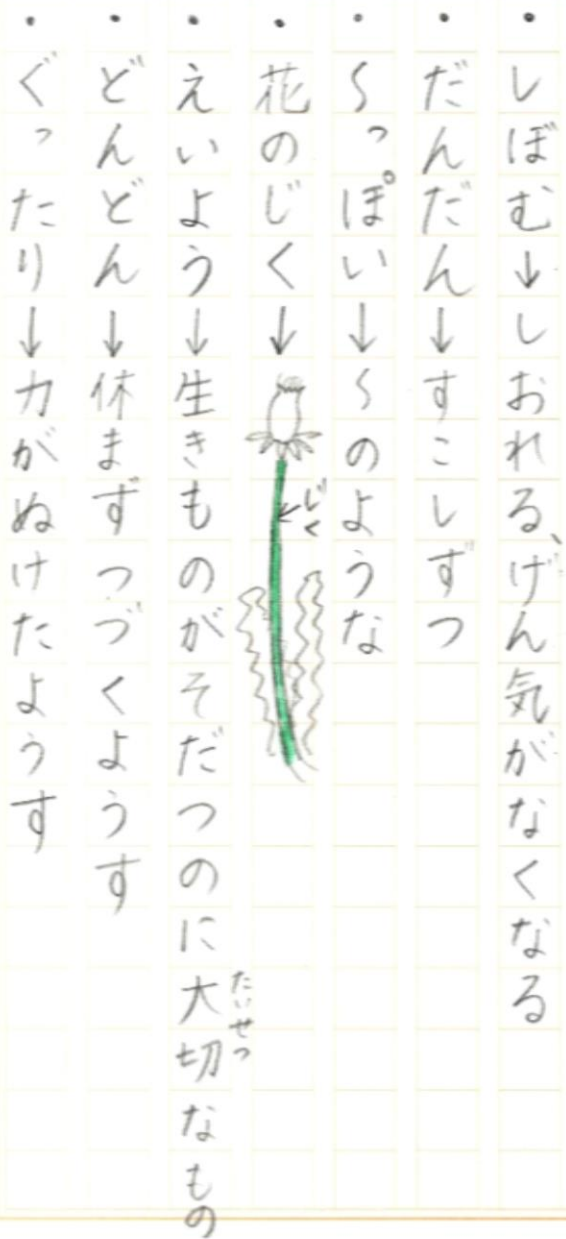 ・しぼむ→しおれる、げん気がなくなる
・だんだん→すこしずつ
・～っぽい→～のような
・花のじく→
じく
・えいよう→生きものがそだつのに大切なもの
たいせつ
・どんどん→休まずつづくようす
・ぐったり→力がぬけたようす